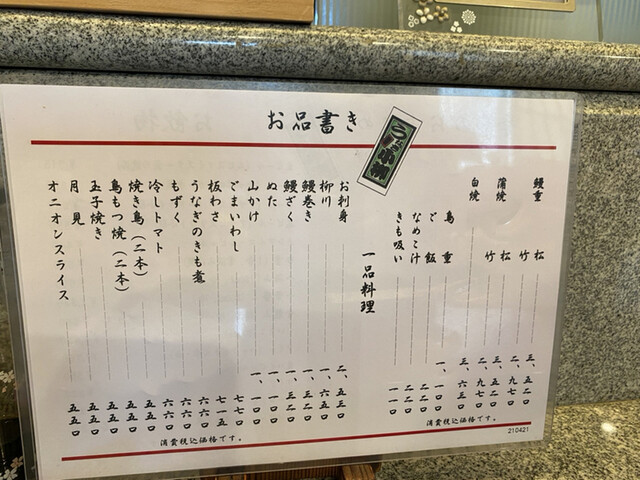 お品書き
鰻重 松 三、五二〇
竹 二、九七〇
蒲焼 松 三、五二〇
竹 二、九七〇
白焼 三、六三〇
鳥重 一、一〇〇
ご飯 二二〇
なめこ汁 二二〇
きも吸い 一一〇
一品料理
お刺身 二、五三〇
柳川 一、六五〇
鰻巻き 一、三二〇
鰻ざく 一、三二〇
ぬた 一、一〇〇
山かけ 一、一〇〇
ごまいわし 七七〇
板わさ 七一五
うなぎのきも煮 六六〇
もずく 六六〇
冷しトマト 六六〇
焼き鳥(二本) 五五〇
鳥もつ焼(二本) 五五〇
玉子焼き 五五〇
月見 五五〇
オニオンスライス 五五〇
消費税込価格です。
消費税込価格です。
210421